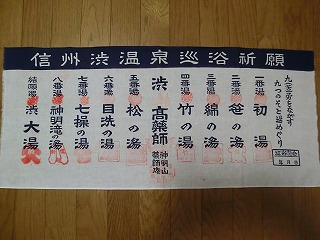 信州渋温泉巡浴祈願
九(苦)労をながす
九つのそと湯めぐり
年月日
一番湯 初湯
二番湯 笹の湯
三番湯 綿の湯
四番湯 竹の湯
渋 高薬師
神明山
薬師庵
五番湯 松の湯
六番湯 目洗の湯
七番湯 七操の湯
八番湯 神明滝の湯
結願湯 渋大湯